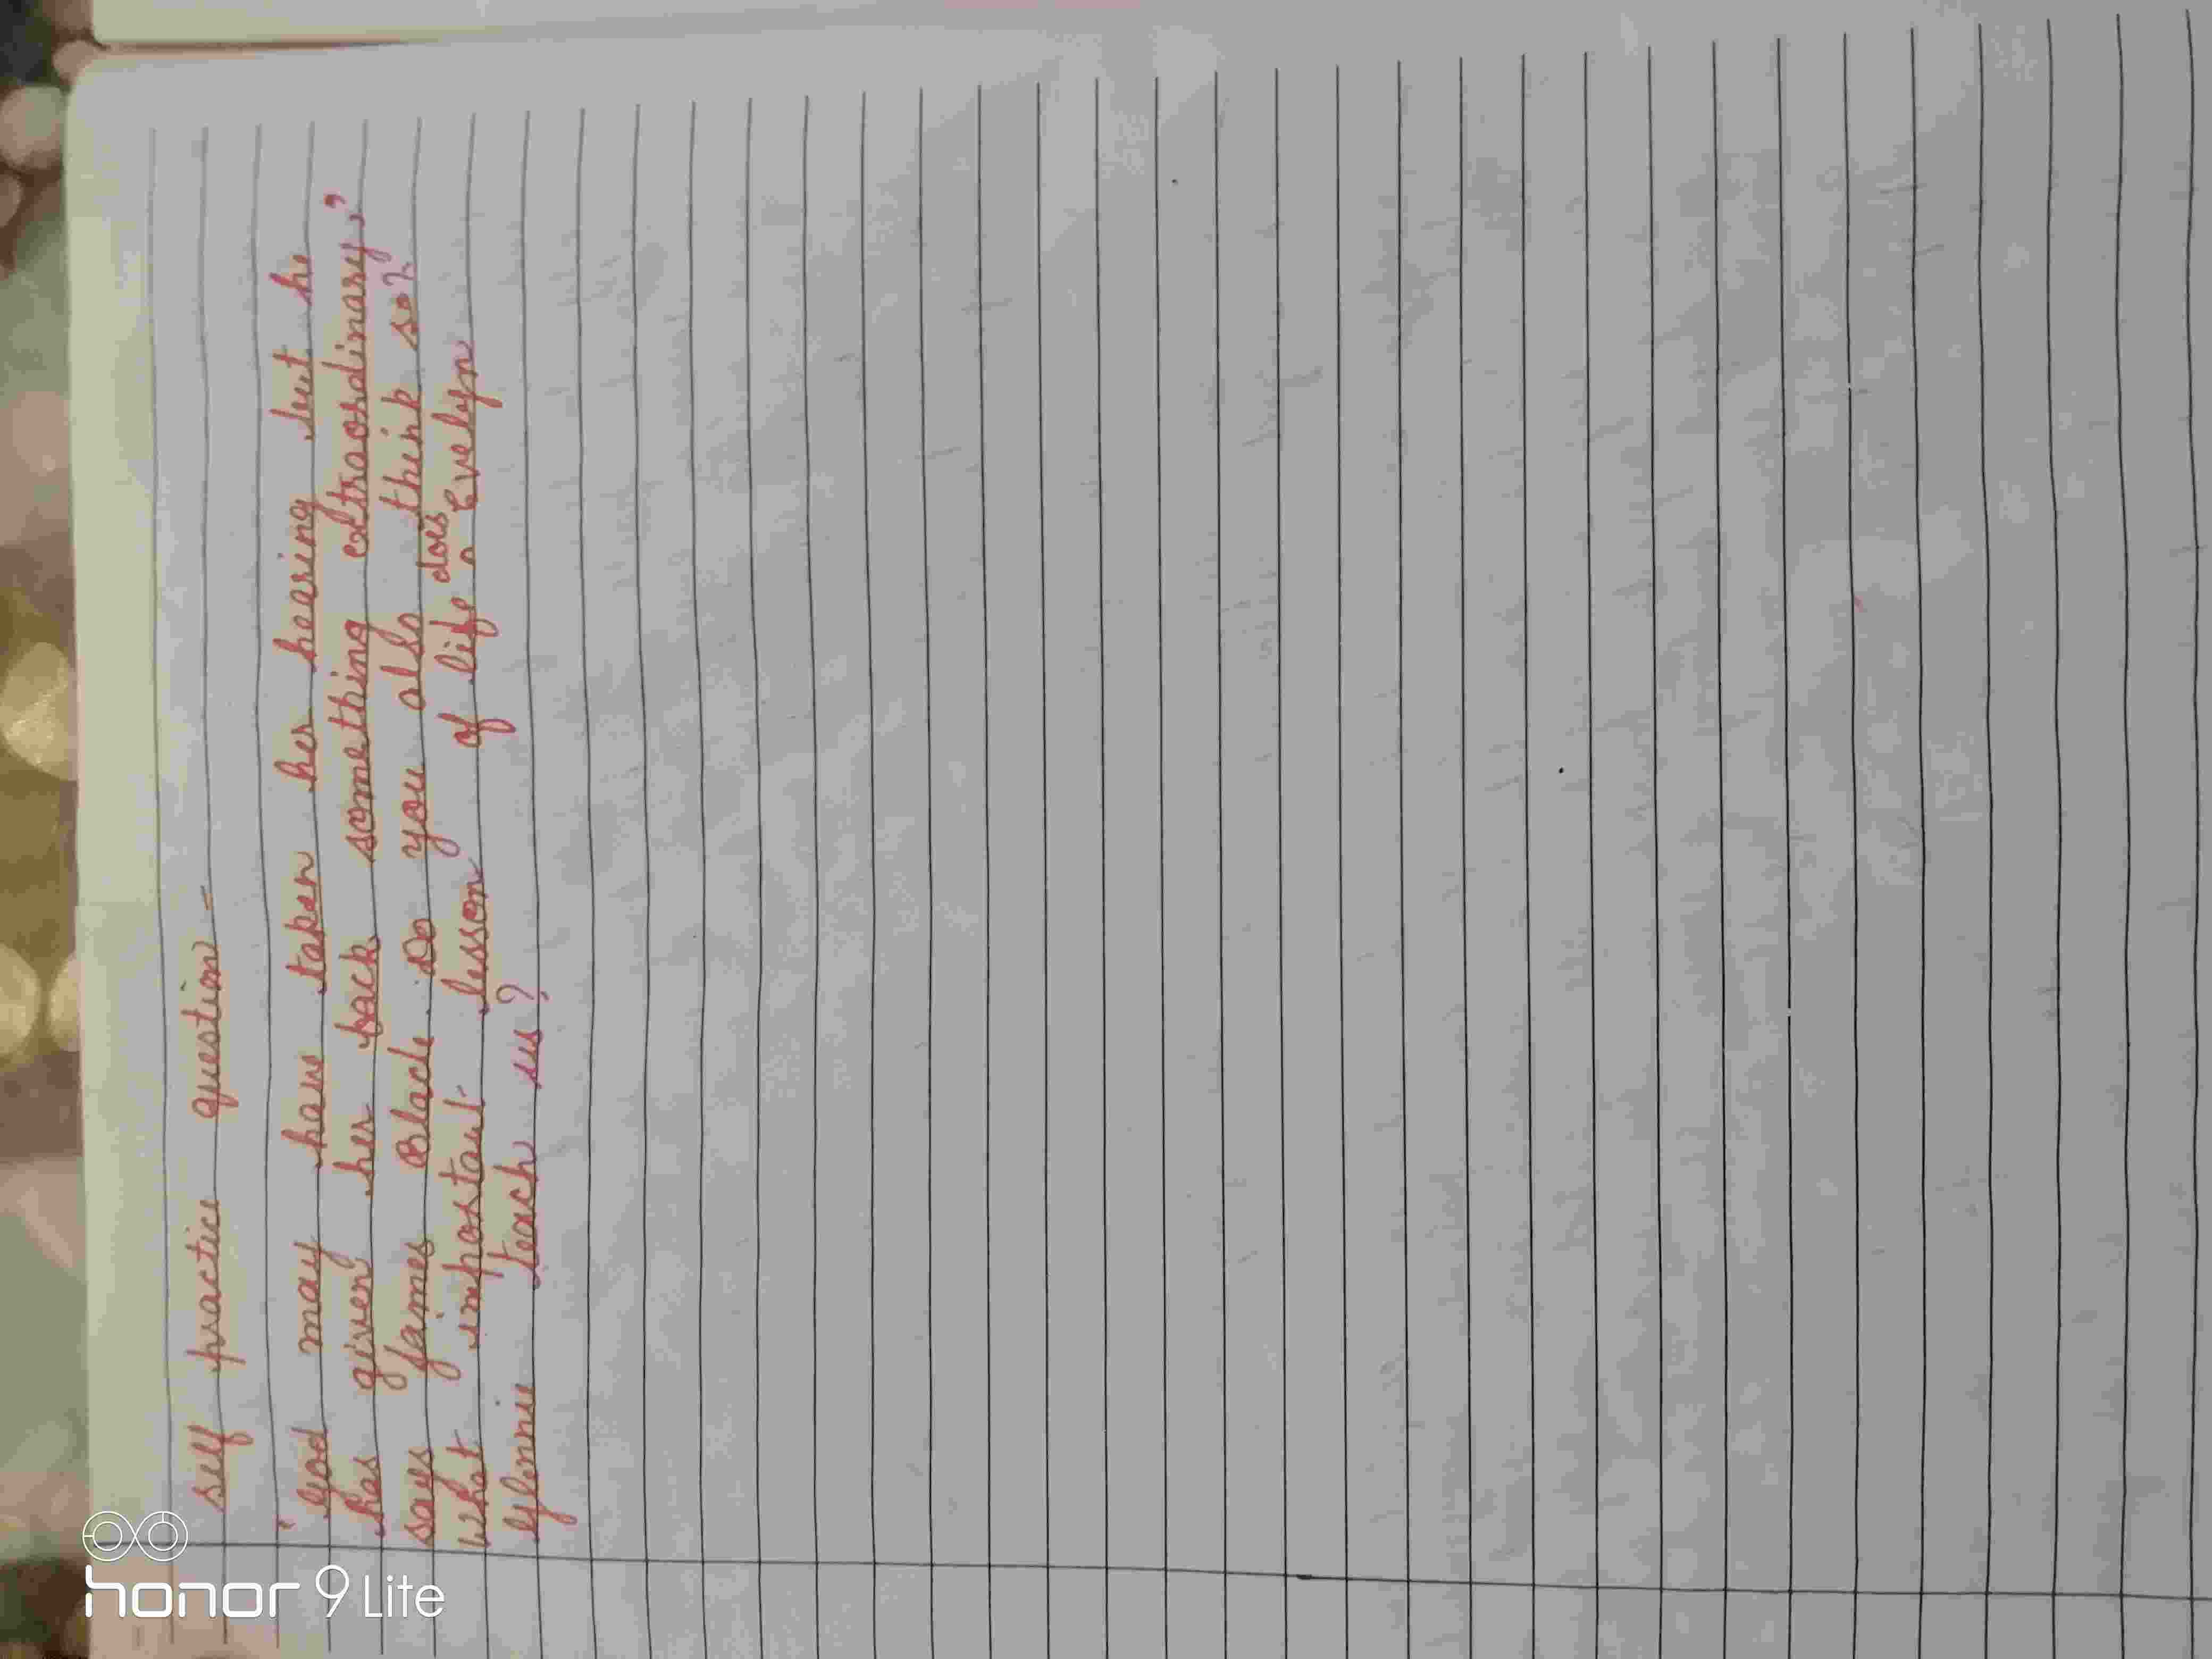 self practice question -
"God may have taken her hearing but he
has given her back something extraordinary,"
says James Black. Do you also think so?
What important lesson of life does Evelyn
Glennie teach us?
honor 9 Lite